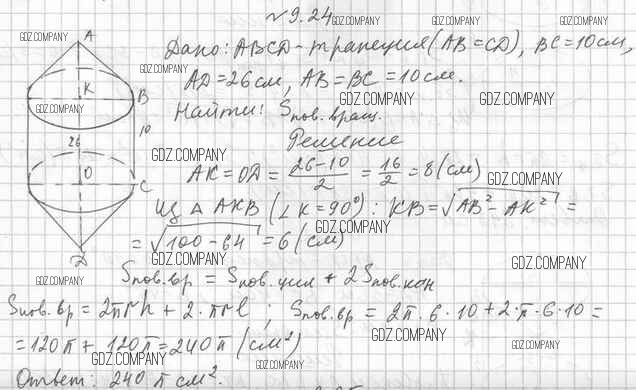 № 9.24
Дано: ABCD - трапеция (AB = CD), BC = 10 см,
AD = 26 см, AB = BC = 10 см.
Найти: Sпов. вращ.
Решение
AK = OD = (26-10)/2 = 16/2 = 8 (см)
Из △ AKB (∠K = 90°): KB = √(AB² - AK²) =
= √(100 - 64) = 6 (см)
Sпов.вр = Sпов.цил + 2Sпов.кон
Sпов.вр = 2πrh + 2·πrl ; Sпов.вр = 2π·6·10 + 2·π·6·10 =
= 120π + 120π = 240π (см²)
Ответ: 240π см².
A
K
B
10
26
O
C
D
GDZ.COMPANY
GDZ.COMPANY
GDZ.COMPANY
GDZ.COMPANY
GDZ.COMPANY
GDZ.COMPANY
GDZ.COMPANY
GDZ.COMPANY
GDZ.COMPANY
GDZ.COMPANY
GDZ.COMPANY
GDZ.COMPANY
GDZ.COMPANY
GDZ.COMPANY
GDZ.COMPANY
GDZ.COMPANY
GDZ.COMPANY